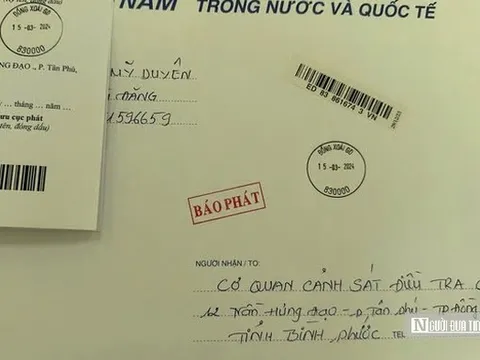 NAM TRONG NƯỚC VÀ QUỐC TẾ
ĐỒNG XOÀI BĐ
15-03-2024
830000
NG ĐẠO., P. Tân Phú,
... tháng ... năm ...
ưu cục phát
tên, đóng dấu)
MỸ DUYÊN
ĐĂNG
1596659
ED 83 861674 3 VN
ĐỒNG XOÀI BĐ
15-03-2024
830000
BÁO PHÁT
NGƯỜI NHẬN/TO:
CƠ QUAN CẢNH SÁT ĐIỀU TRA
12 Trần Hưng Đạo - p Tân phú - Tp Đồng
TỈNH BÌNH PHƯỚC TEL
NGƯỜI ĐƯA TIN